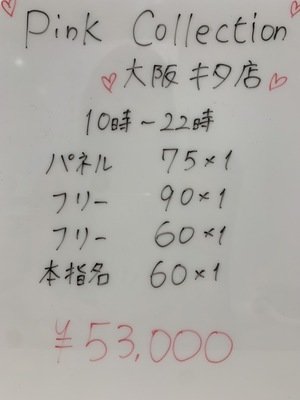 Pink Collection
大阪キタ店
10時～22時
パネル 75×1
フリー 90×1
フリー 60×1
本指名 60×1
¥53,000